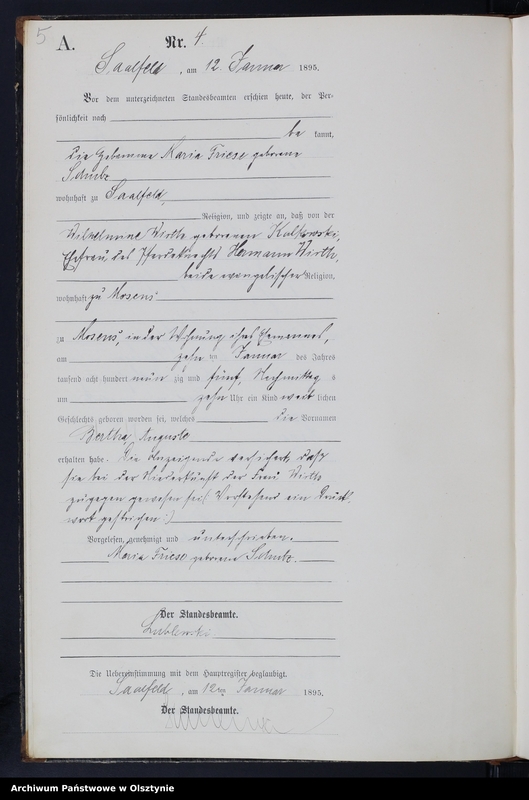 5
A.
Nr. 4.
Saalfeld, am 12. Januar 1895.
Vor dem unterzeichneten Standesbeamten erschien heute, der Per-
sönlichkeit nach
be kannt,
die Hebamme Maria Friese geborene
Schulz
wohnhaft zu Saalfeld,
Religion, und zeigte an, daß von der
Wilhelmine Wirth geborenen
Ehefrau des Pferdeknechts Hermann Wirth,
beide evangelischer Religion,
wohnhaft zu Mosens
zu Mosens, in der Wohnung ihres Ehemannes,
am zehn ten Januar des Jahres
tausend acht hundert neun zig und fünf, Nachmittag s
um zehn Uhr ein Kind weib lichen
Geschlechts geboren worden sei, welches die Vornamen
Bertha, Auguste
erhalten habe. Die Anzeigende versichert, daß
sie bei der Niederkunft der Frau Wirth
zugegen gewesen sei. (Vorstehend ein Druck-
wort gestrichen.)
Vorgelesen, genehmigt und unterschrieben.
Maria Friese geborene Schulz.
Der Standesbeamte.
Die Uebereinstimmung mit dem Hauptregister beglaubigt.
Saalfeld, am 12ten Januar 1895.
Der Standesbeamte.
Archiwum Państwowe w Olsztynie